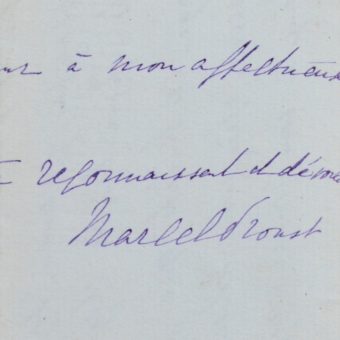 à mon affectueux
reconnaissant et dévoué
Marcel Proust